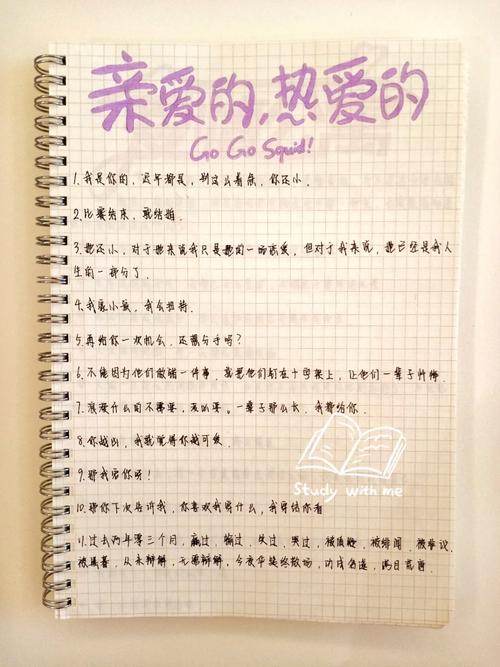 亲爱的,热爱的
Go Go Squid!
1.我是你的,迟早都是,别这么着急,你还小.
2.比赛结束,就结婚.
3.她还小,对于她来说我只是她的一场恋爱,但对于我来说,她已经是我人
生的一部分了.
4.我家小孩,我会担待.
5.再给你一次机会,还要分手吗?
6.不能因为他们做错一件事,就把他们钉在十字架上,让他们一辈子忏悔.
7.浪漫什么的不需要,来日方。一辈子那么长,我都给你.
8.你越凶,我就觉得你越可爱.
9.那我写你呗!
10.那你下次告诉我,你喜欢我写什么,我写给你看
11.过去两年零三个月,赢过,输过,笑过,哭过,被质疑,被诽闻,被争议,
被温暖,从未辩解,无需辩解,今夜华筵终散场,功成名遂,满目荒唐.
Study with me